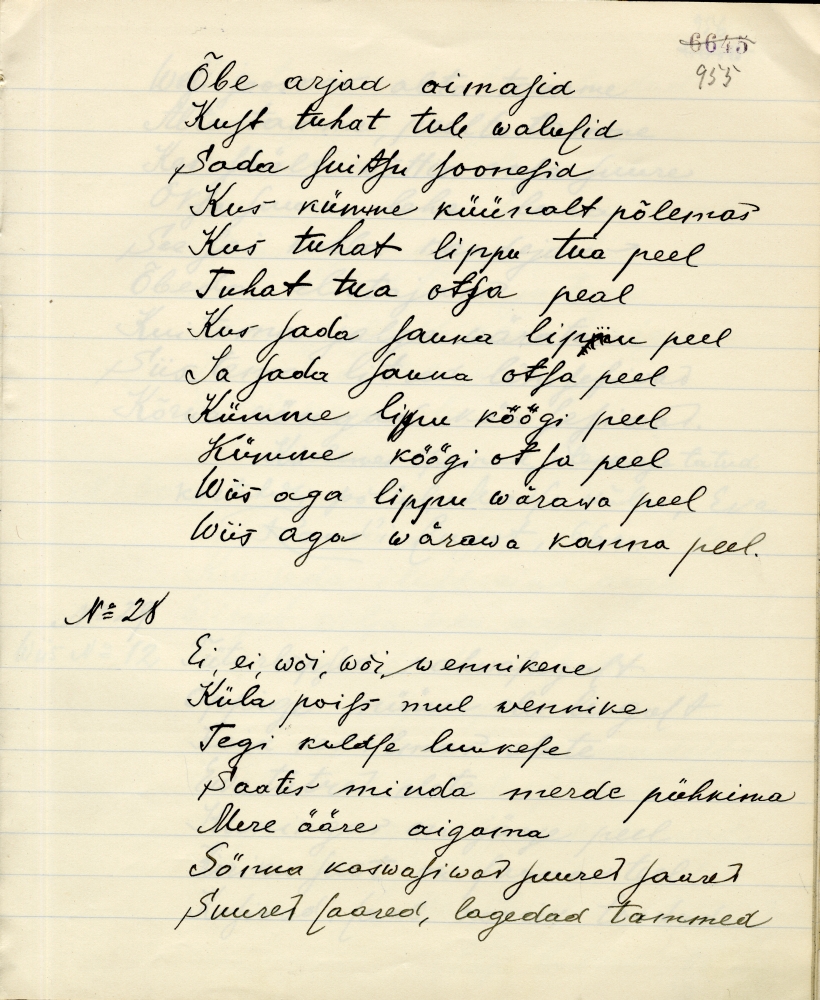 6645
955
Õbe arjad aimasid
Kust tuhat tule walusid
Sada suitsu soonesid
Kus kümme küünalt põlemas
Kus tuhat lippu tua peel
Tuhat tua otsa peal
Kus sada sauna lippu peel
Ja sada sauna otsa peel
Kümme lippu köögi peel
Kümme köögi otsa peel
Wiis aga lippu wärawa peel
Wiis aga wärawa kanna peel.
№ 28
Ei, ei, wõi, wõi, wennikene
Küla poiss mul wennike
Tegi kuldse luukese
Saatis minda merde pühkima
Mere ääre aigama
Sõnna kaswasiwad suured saared
Suured saared, lagedad tammed